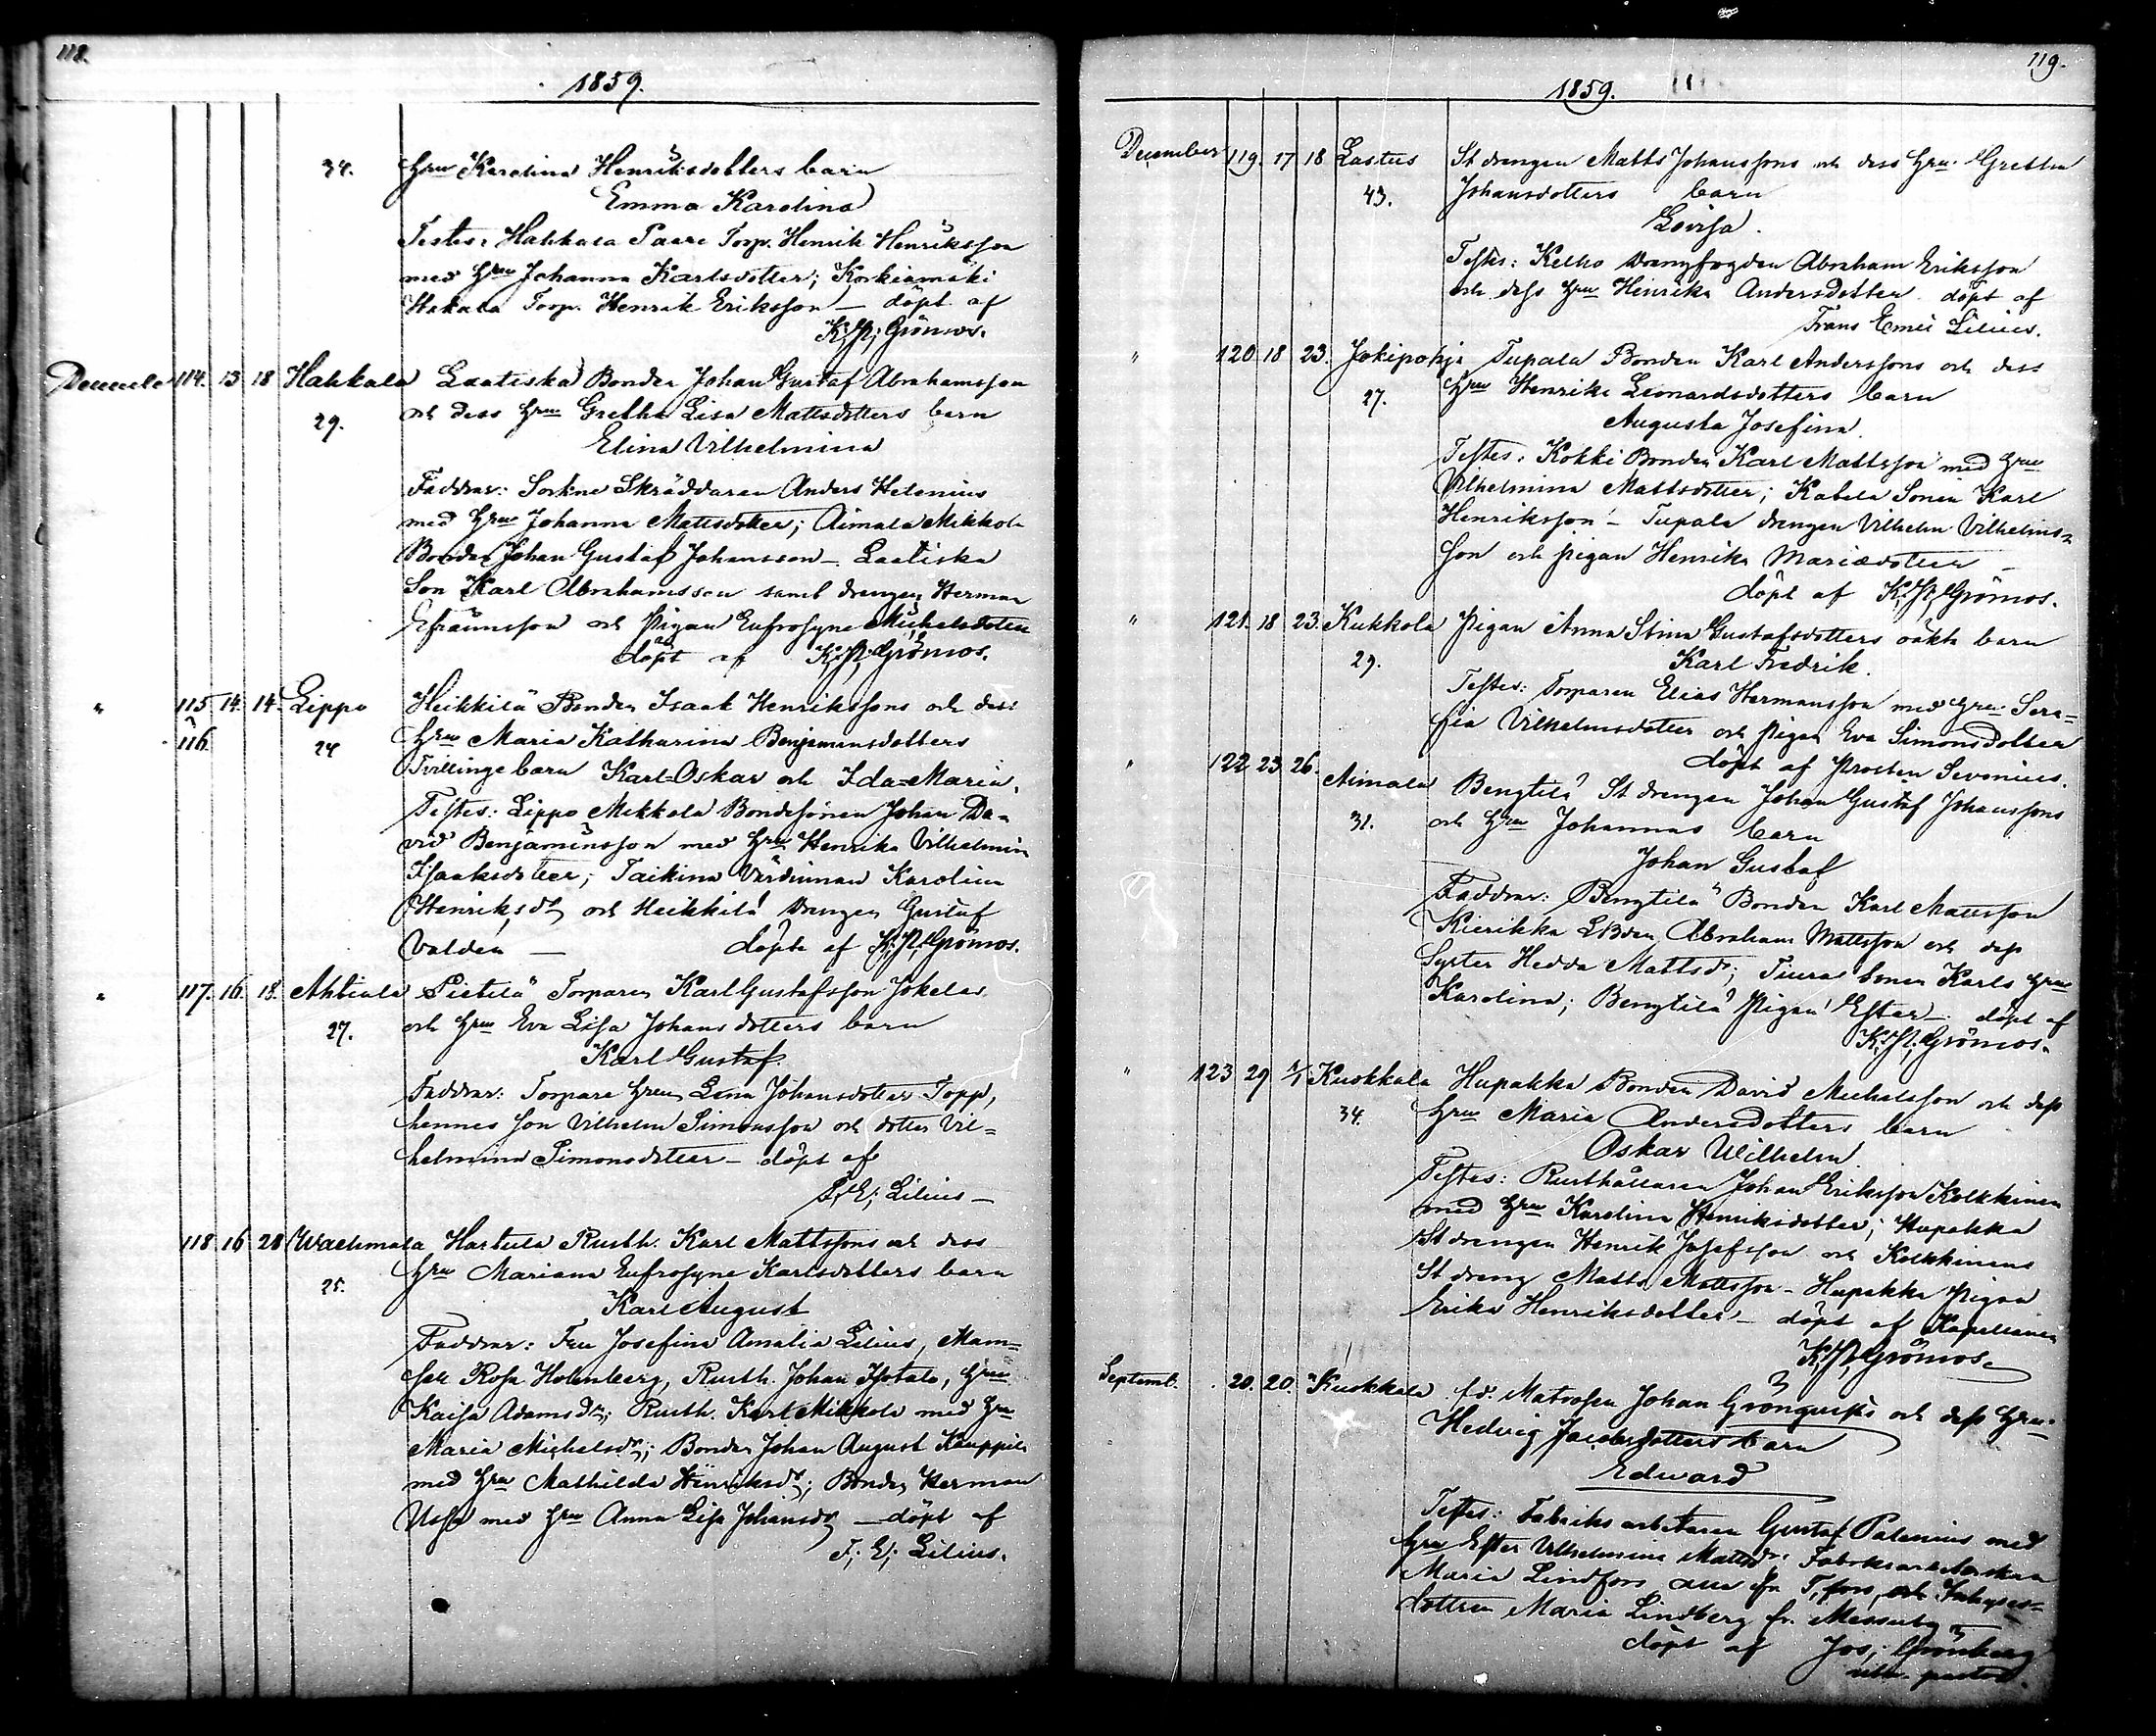 118.
1859.
34. Hru Karolina Henriksdotters barn
Emma Karolina
Testes: Hakkala Paare Torp. Henrik Henriksson
med Hru Johanna Karlsdotter; Korkiamäki
Hakala Torp. Henrik Eriksson — döpt af
K; A; Grönroos.
December 114. 13 18 Hakkala Laatiska Bonden Johan Gustaf Abrahamsson
29. och dess Hru Gretha Lisa Mattsdotters barn
Elina Vilhelmina
Faddrar: Sockne Skräddaren Anders Helenius
med Hru Johanna Mattsdotter; Aimala Mikkola
Bonden Johan Gustaf Johansson — Laatiska
Son Karl Abrahamsson samt drengen Herman
Efraimsson och Pigan Eufrosyne Michelsdotter
döpt af K; A; Grönroos.
" 115 14. 14. Lippo Heikkilä Bonden Isaak Henrikssons och dess
116. 24 Hru Maria Katharina Benjaminsdotters
Tvillingebarn Karl=Oskar och Ida=Maria.
Testes: Lippo Mikkola Bondesonen Johan Da=
vid Benjaminsson med Hru Henrika Vilhelmina
Isaaksdotter; Taikina Värdinnan Karolina
Henriksdr och Heikkilä Drengen Gustaf
Valden — döpte af K; A; Grönroos.
" 117. 16. 18. Ahtiala Pietilä Torparen Karl Gustafsson Jokelas
27. och Hru Eva Lisa Johansdotters barn
Karl Gustaf.
Faddrar: Torpare Hrun Lena Johansdotter Topp,
hennes son Vilhelm Simonsson och dotter Vil=
helmina Simonsdotter — döpt af
F; E; Lilius —
118 16 28 Wachmala Hartula Rusth. Karl Mattssons och dess
25. Hru Mariana Eufrosyne Karlsdotters barn
Karl August
Faddrar: Fru Josefina Amalia Lilius, Mam=
sell Rosa Holmberg, Rusth. Johan Isotalo, Hru
Kaisa Adamsdr; Rusth. Karl Mikkola med Hru
Maria Michelsdr; Bonden Johan August Kauppila
med Hru Mathilda Henriksdr; Bonden Herman
med Hru Anna Lisa Johansdr — döpt af
F; E; Lilius.
119.
1859.
December 119. 17 18 Lastus St drengen Matts Johanssons och dess Hru Gretha
43. Johansdotters barn
Lovisa.
Testes: Kelho Drengfogden Abraham Eriksson
och dess Hru Henrika Andersdotter döpt af
Frans Emil Lilius.
" 120 18 23. Jokipohja Tupala Bonden Karl Anderssons och dess
27. Hru Henrika Leonardsdotters barn
Augusta Josefina.
Testes: Kokki Bonden Karl Mattsson med Hru
Vilhelmina Mattsdotter; Kabela Sonen Karl
Henriksson — Tupala drengen Vilhelm Vilhelms=
son och pigan Henrika Mariædotter —
döpt af K; A; Grönroos.
" 121. 18 23. Kukkola Pigan Anna Stina Gustafsdotters oäkta barn
29. Karl Fredrik.
Testes: Torparen Elias Hermansson med Hru Sera=
fia Vilhelmsdotter och pigan Eva Simonsdotter
döpt af Prosten Sevonius.
" 122 23 26. Aimala Bengtilä St drengen Johan Gustaf Johanssons
31. och Hru Johannas barn
Johan Gustaf
Faddrar: Bengtilä Bonden Karl Mattsson
Kierikka LBden Abraham Mattsson och dess
Syster Hedda Mattsdr; Tiura Sonen Karls Hru
Karolina; Bengtilä Pigan Ester — döpt af
K; A; Grönroos.
" 123 29 1/1 Kuokkala Hupakka Bonden David Michelsson och dess
34. Hru Maria Andersdotters barn
Oskar Wilhelm.
Testes: Rusthållaren Johan Eriksson Kolkkinen
med Hru Karolina Henriksdotter; Hupakka
St drengen Henrik Josefsson och Kolkkinens
St dreng Matts Mattsson — Hupakka Pigan
Erika Henriksdotter — döpt af Kapellanen
K; A; Grönroos.
Septemb. 20. 20. Kuokkala fd. Matrosen Johan Grönquists och dess Hru
Hedvig Jacobsdotters barn
Edward
Testes: Fabriks arbetaren Gustaf Palenius med
Hru Ester Vilhelmina Mattsdr; Fabriksarbeterskan
Maria Lindfors alla fr T,fors, och Inhyses=
dottren Maria Lindberg fr. Messuby
döpt af Jos; Grönberg
vice pastor.